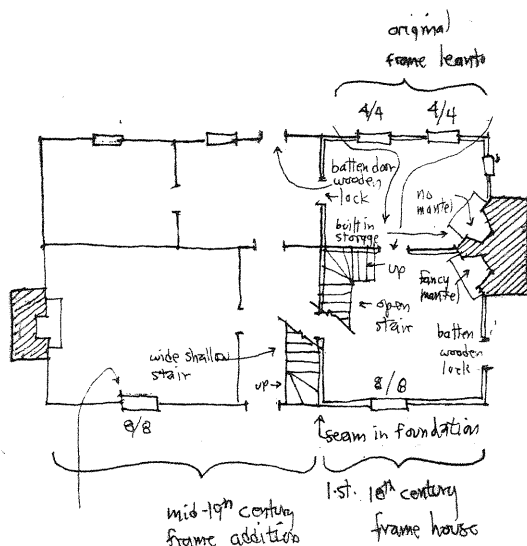 original
frame leanto
4/4
4/4
batten door
wooden
lock
no
mantel
built in
storage
up
fancy
mantel
open
stair
batten
wooden
lock
wide shallow
stair
up
8/8
8/8
seam in foundation
mid-19th century
frame addition
1.st. 18th century
frame house